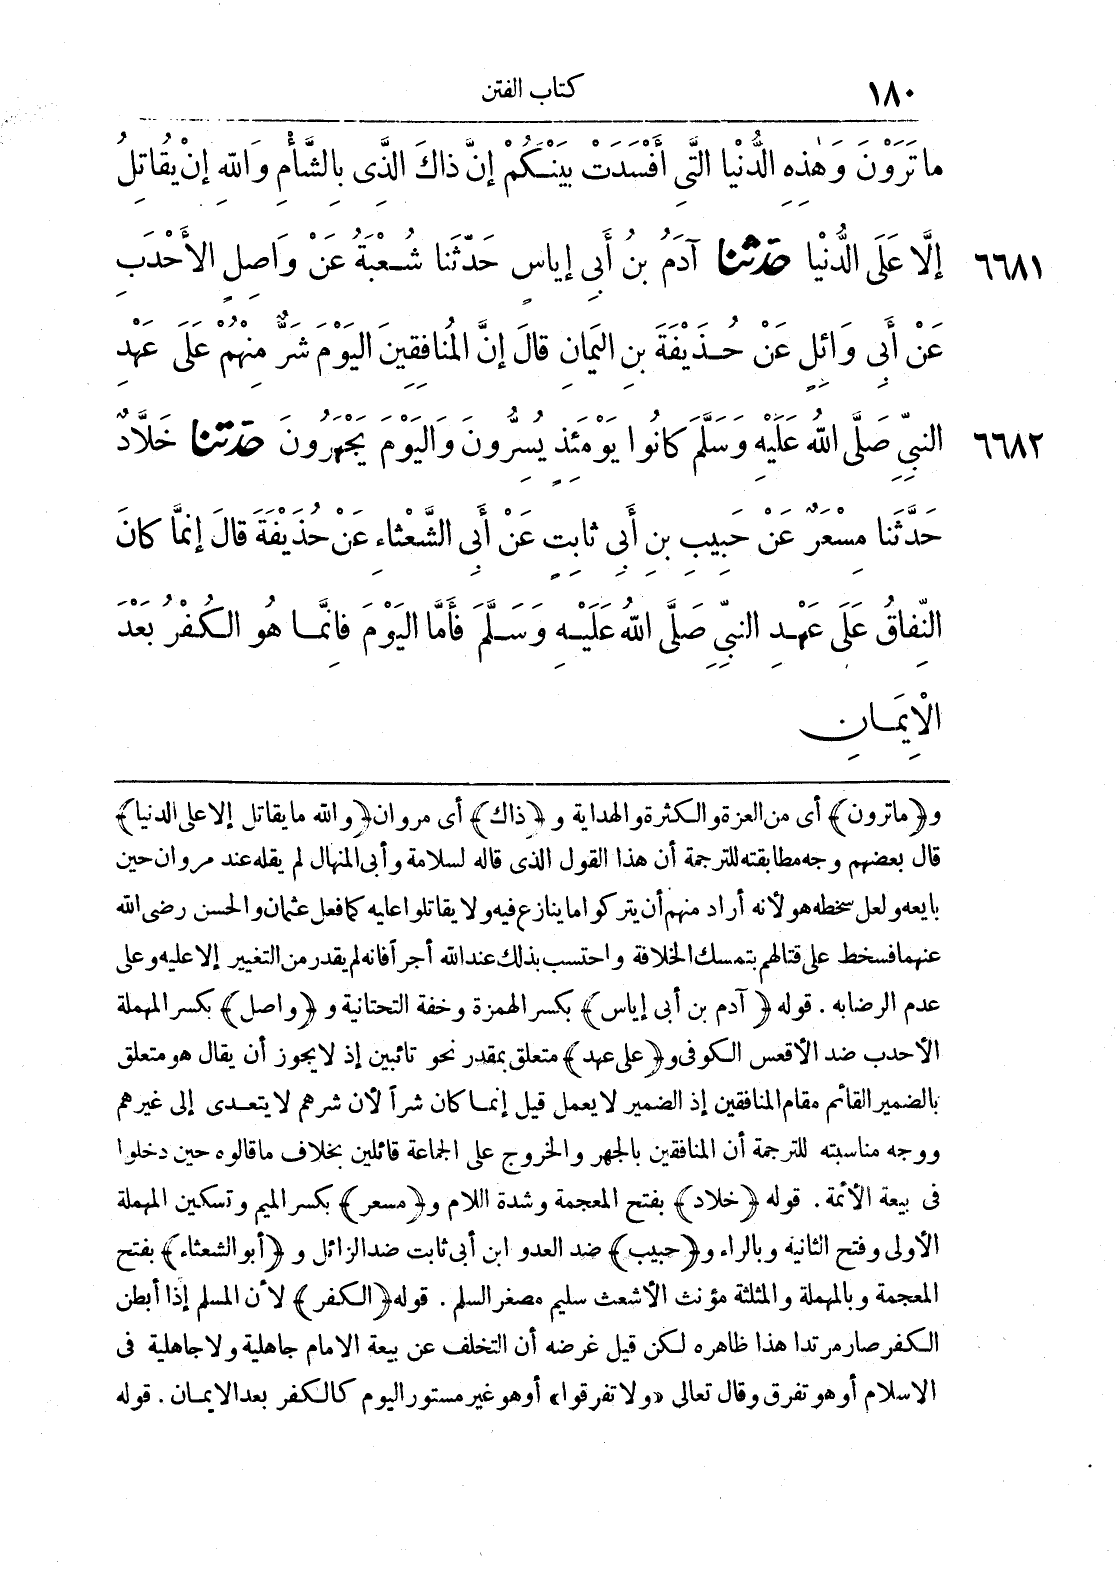 ١٨٠ كتاب الفتن
ما تَرَوْنَ وَهٰذِهِ الدُّنْيا الَّتِى أَفْسَدَتْ بَيْنَكُمْ إنَّ ذاكَ الَّذِى بِالشَّأْمِ وَاللهِ إنْ يُقاتِلُ
٦٦٨١ إلَّا عَلَى الدُّنْيا حدثنا آدَمُ بنُ أَبِى إياسٍ حَدّثَنا شُعْبَةُ عَنْ وَاصِلٍ الأَحْدَبِ
عَنْ أَبِى وَائِلٍ عَنْ حُذَيْفَةَ بنِ اليَمانِ قالَ إنَّ المُنافِقِينَ اليَوْمَ شَرٌّ مِنْهُمْ عَلَى عَهْدِ
٦٦٨٢ النبيِّ صَلَّى اللهُ عَلَيْهِ وَسَلَّمَ كانُوا يَوْمَئِذٍ يُسِرُّونَ وَاليَوْمَ يَجْهَرُونَ حدثنا خَلَّادٌ
حَدَّثَنا مِسْعَرٌ عَنْ حَبِيبِ بنِ أَبِى ثابِتٍ عَنْ أَبِى الشَّعْثاءِ عَنْ حُذَيْفَةَ قالَ إنَّما كانَ
النِّفاقُ عَلَى عَهْدِ النبيِّ صَلَّى اللهُ عَلَيْهِ وَسَلَّمَ فَأَمَّا اليَوْمَ فَانَّما هُوَ الكُفْرُ بَعْدَ
الْإِيمَانِ
و﴿ماترون﴾ أى من العزة والكثرة والهداية و﴿ذاك﴾ أى مروان ﴿والله ما يقاتل إلا على الدنيا﴾
قال بعضهم وجه مطابقته للترجمة أن هذا القول الذى قاله لسلامة وأبى المنهال لم يقله عند مروان حين
بايعه ولعل سخطه هو لأنه أراد منهم أن يتركوا ما ينازع فيه ولا يقاتلوا عليه كما فعل عثمان والحسن رضى الله
عنهما فسخط على قتالهم بتمسك الخلافة واحتسب بذلك عند الله أجراً فانه لم يقدر من التغيير إلا عليه وعلى
عدم الرضا به . قوله ﴿آدم بن أبى إياس﴾ بكسر الهمزة وخفة التحتانية و ﴿واصل﴾ بكسر المهملة
الأحدب ضد الأقعس الكوفى و﴿على عهد﴾ متعلق بمقدر نحو تائبين إذ لا يجوز أن يقال هو متعلق
بالضمير القائم مقام المنافقين إذ الضمير لا يعمل قيل إنما كان شراً لأن شرهم لا يتعدى إلى غيرهم
ووجه مناسبته للترجمة أن المنافقين بالجهر والخروج على الجماعة قائلين بخلاف ماقالوه حين دخلوا
فى بيعة الأئمة . قوله ﴿خلاد﴾ بفتح المعجمة وشدة اللام و﴿مسعر﴾ بكسر الميم وتسكين المهملة
الأولى وفتح الثانيه وبالراء و﴿حبيب﴾ ضد العدو ابن أبى ثابت ضد الزائل و ﴿أبو الشعثاء﴾ بفتح
المعجمة وبالمهملة والمثلثة مؤنث الأشعث سليم مصغر السلم . قوله ﴿الكفر﴾ لأن المسلم إذا أبطن
الكفر صار مرتدا هذا ظاهره لكن قيل غرضه أن التخلف عن بيعة الامام جاهلية ولا جاهلية فى
الاسلام أو هو تفرق وقال تعالى «ولا تفرقوا» أو هو غير مستور اليوم كالكفر بعد الايمان . قوله